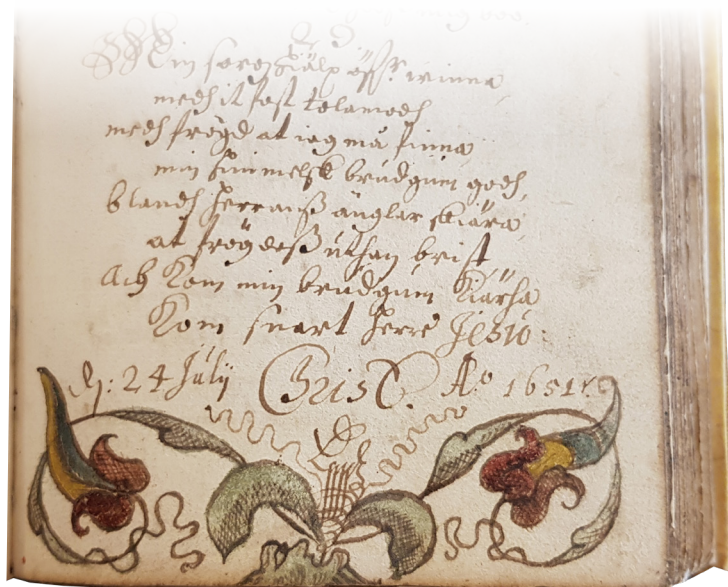 Min sorg hiälp öffr winna
medh it fast tolamodh
medh frögd at iag må finna
min himmelsk brudgum godh,
blandh herrans änglar skiära
at frögdeß uthan brist
Ach kom min brudgum kiärha
Kom snart herre Jesu
Christ. A:o 1651
24 July